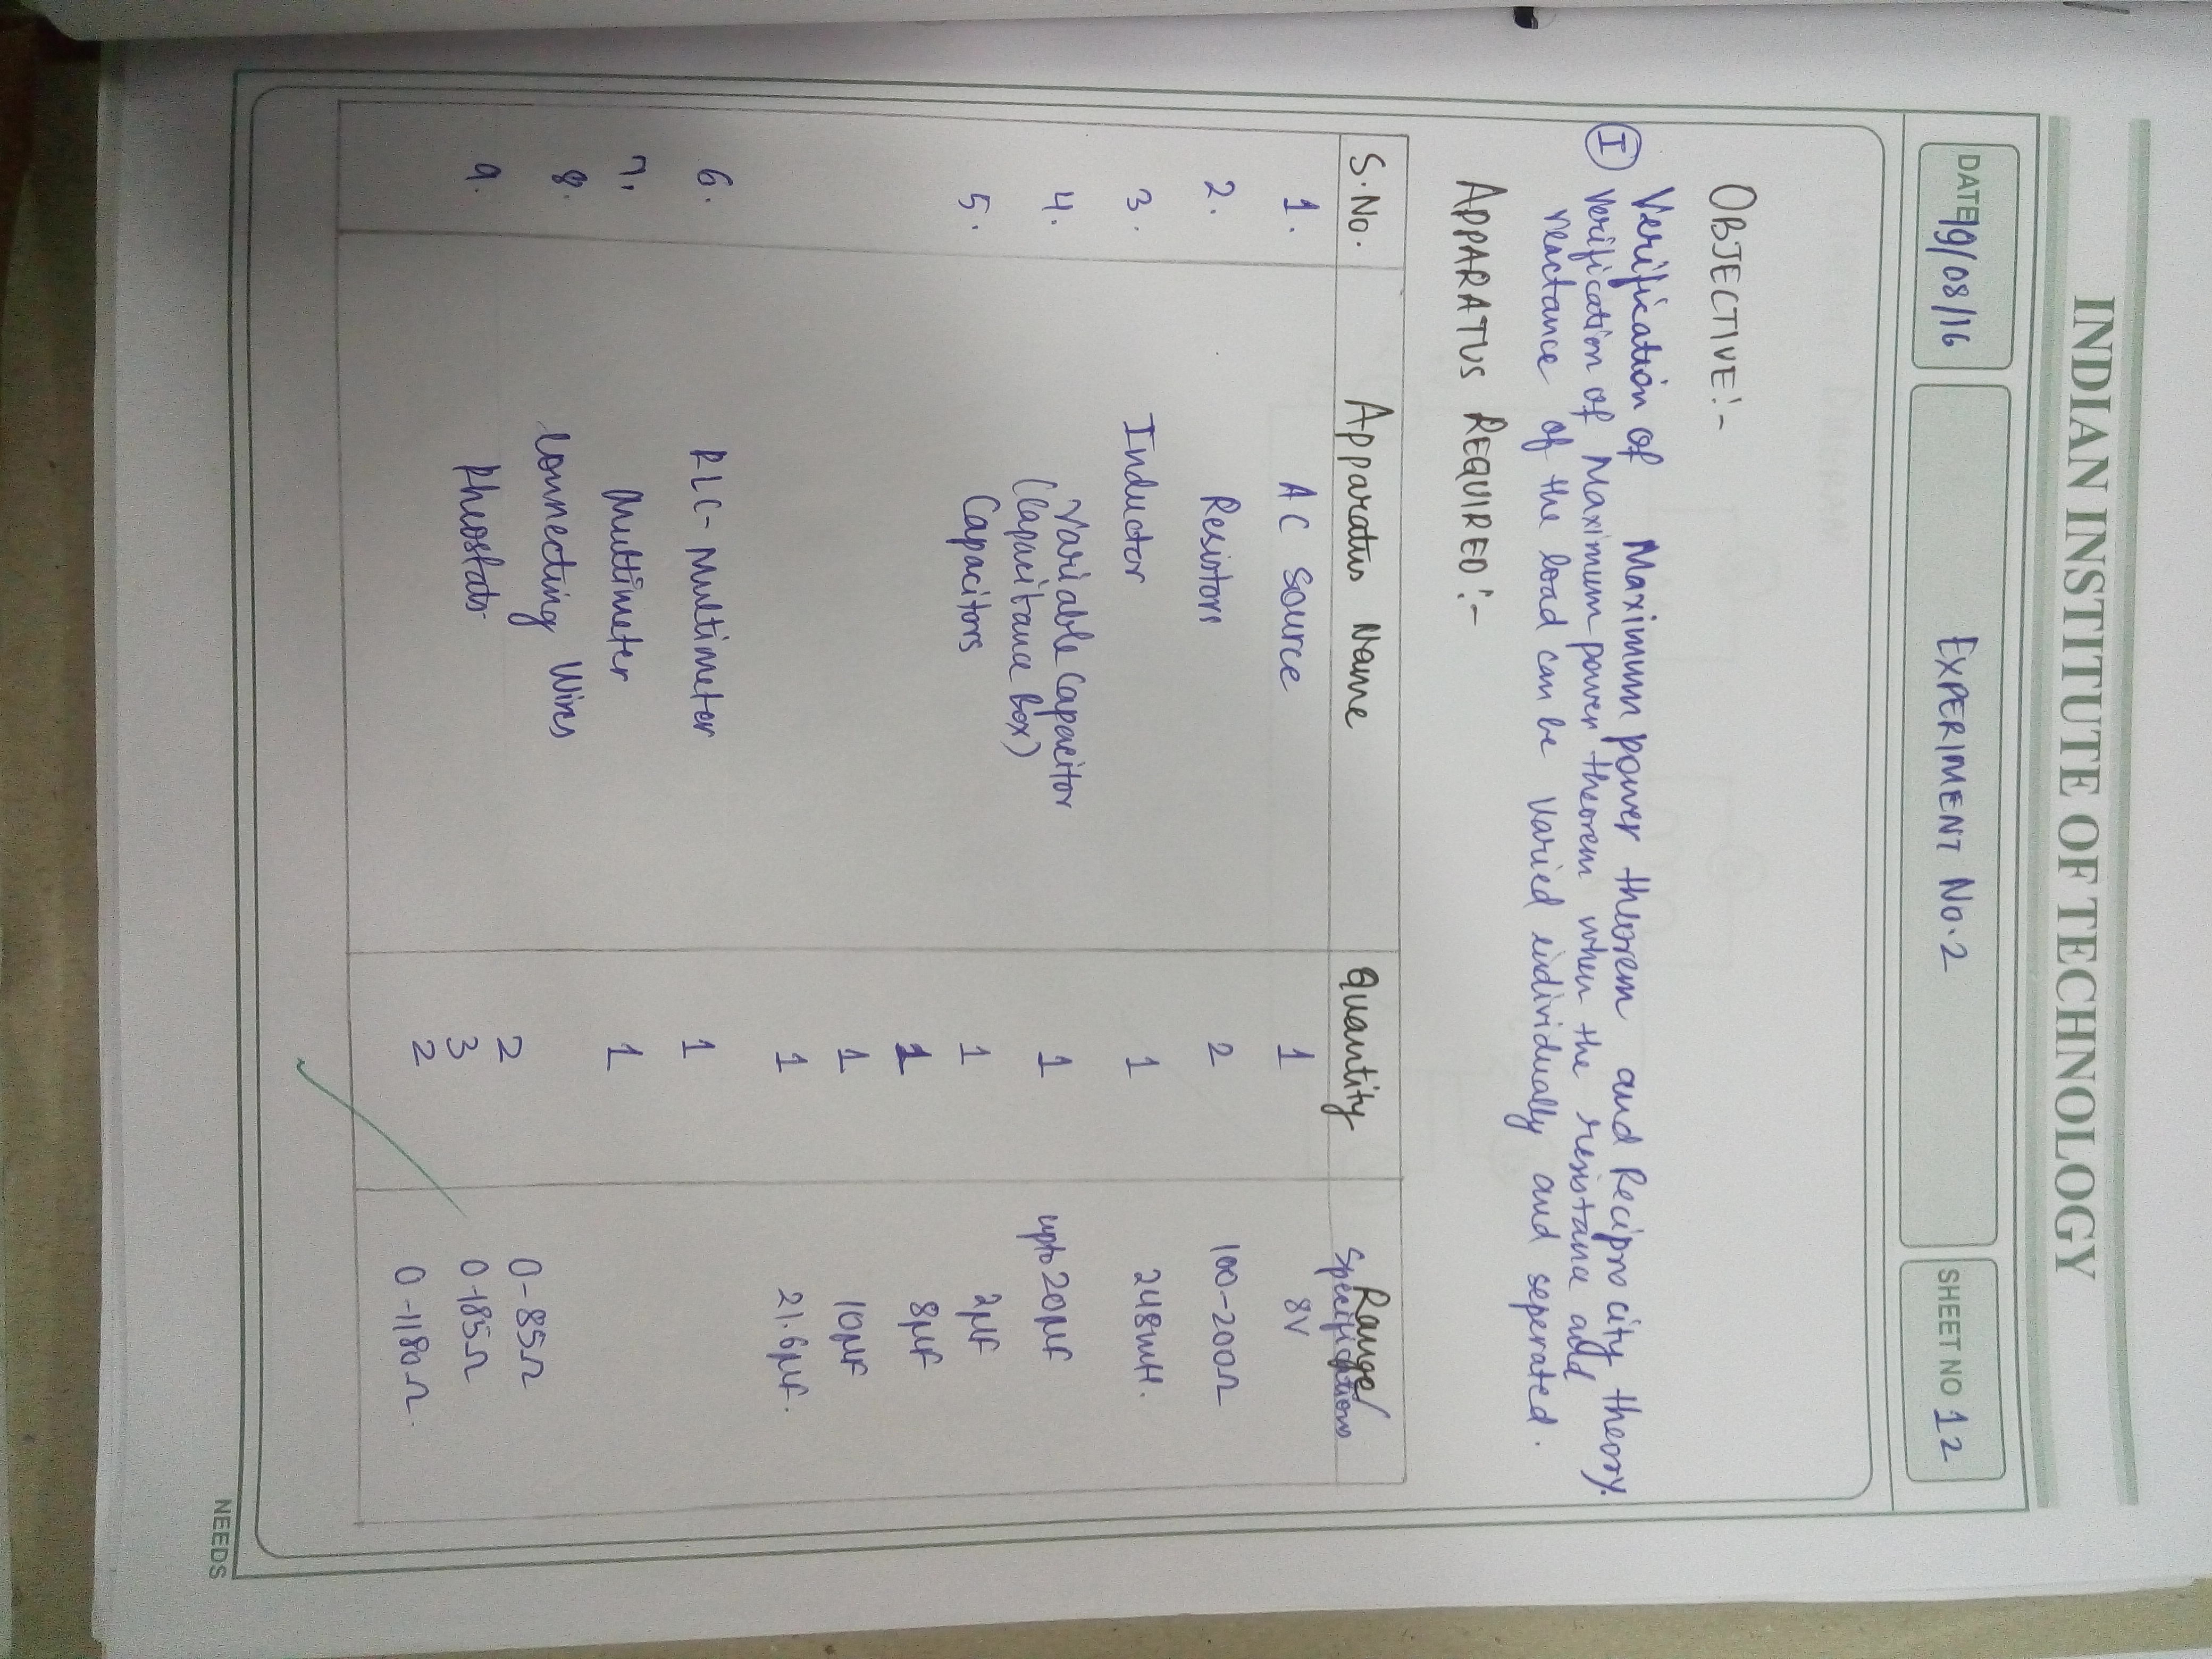 INDIAN INSTITUTE OF TECHNOLOGY
DATE 19/08/16 EXPERIMENT NO.2 SHEET NO 12
OBJECTIVE:-
Verification of Maximum power theorem and Reciprocity theory.
I Verification of Maximum power theorem when the resistance and
reactance of the load can be varied individually and seperated.
APPARATUS REQUIRED:-
S.No. Apparatus Name Quantity Range/
Specifications
1. AC Source 1 8V
2. Resistors 2 100-200Ω
3. Inductor 1 248mH.
4. Variable Capacitor 1 upto 20μF
(Capacitance Box)
5. Capacitors 1 2μF
1 8μF
1 10μF
1 21.6μF.
6. RLC-Multimeter 1
7. Multimeter 1
8. Connecting Wires
2 0-85Ω
9. Rheostats 3 0-185Ω
2 0-1180Ω.
NEEDS